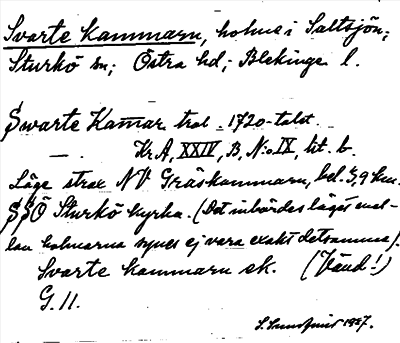 Svarte kammarn, holme i Saltsjön;
Sturkö sn; Östra hd; Blekinge l.
Swarte Kam̄ar trol. 1720-talet
— Kr. A, XXIV, B, N:o IX, lit. b.
Läge strax NV Gräskammarn, bel. 3,9 km.
SSÖ Sturkö kyrka. (Det inbördes läget mel-
lan holmarna synes ej vara exakt detsamma).
Svarte kammarn ek. (Vänd!)
G. 11.
S. Sundquist 1927.